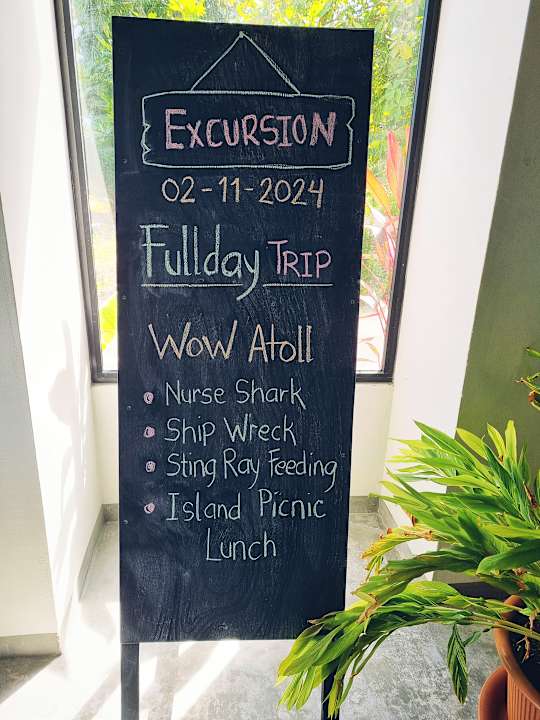 EXCURSION
02-11-2024
Fullday TRIP
WOW Atoll
Nurse Shark
Ship Wreck
Sting Ray Feeding
Island Picnic
Lunch